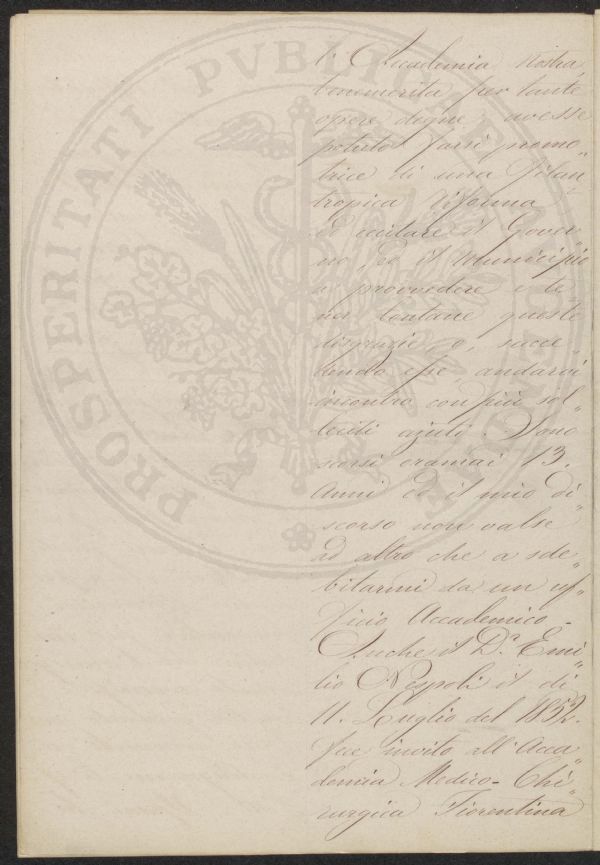 PROSPERITATI PVBLICAE AVGENDAE
l'Accademia nostra,
benemerita per tante
opere degne, avesse
potuto farsi promo„
trice di una filan„
tropica riforma
ed eccitare il Gover„
no, ed il Municipio
a provvedere e te„
ner lontane queste
disgrazie, o, succe„
dendo esse, andarvi
incontro con più sol„
leciti ajuti. Sono
scorsi oramai 13.
Anni ed il mio di„
scorso non valse
ad altro che a sde„
bitarmi da un uf„
ficio Accademico-
Anche il Dr. Emi„
lio Nespoli il di
11. Luglio del 1852.
fece invito all'Acca„
demia Medico-Chi„
rurgica Fiorentina